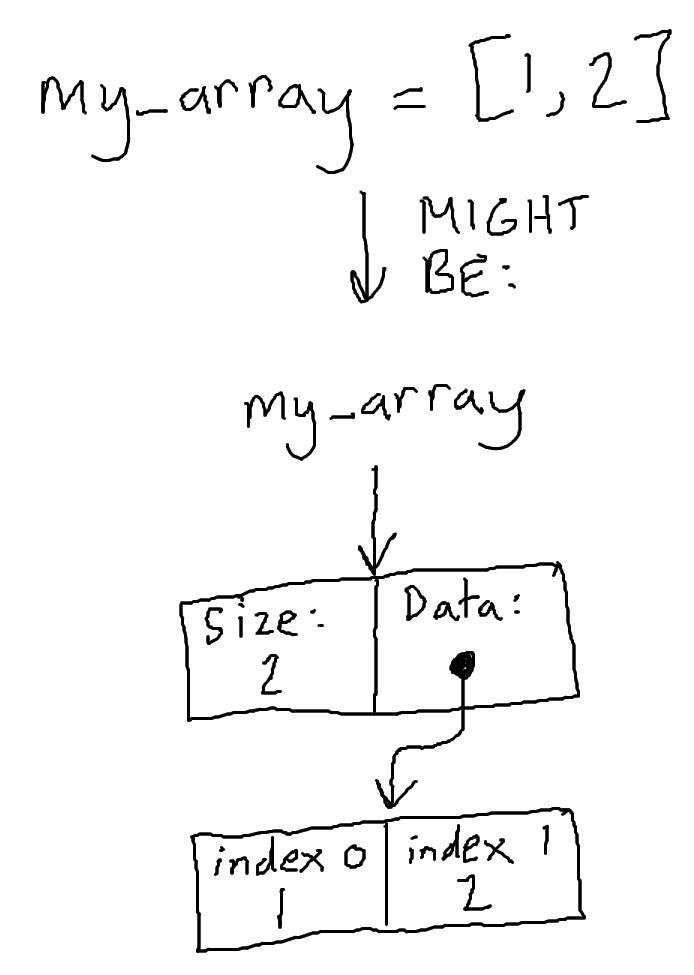 my_array = [1, 2]
MIGHT
BE:
my_array
Size:
2
Data:
index 0
1
index 1
2